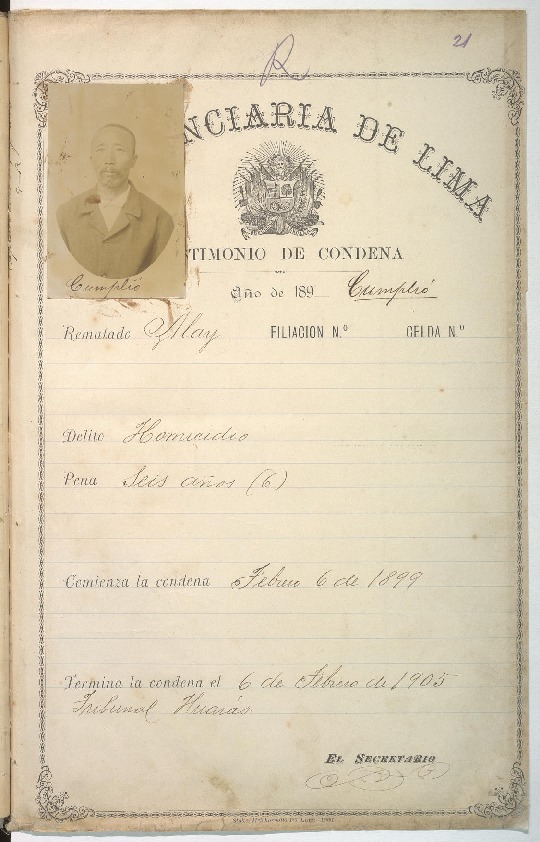 R
21
NCIARIA DE LIMA
TIMONIO DE CONDENA
Cumplió
Año de 189 Cumplió
Rematado Alay FILIACION N.º CELDA N.º
Delito Homicidio
Pena Seis años (6)
Comienza la condena Febrero 6 de 1899
Termina la condena el 6 de Febrero de 1905
Tribunal Huarás
EL SECRETARIO